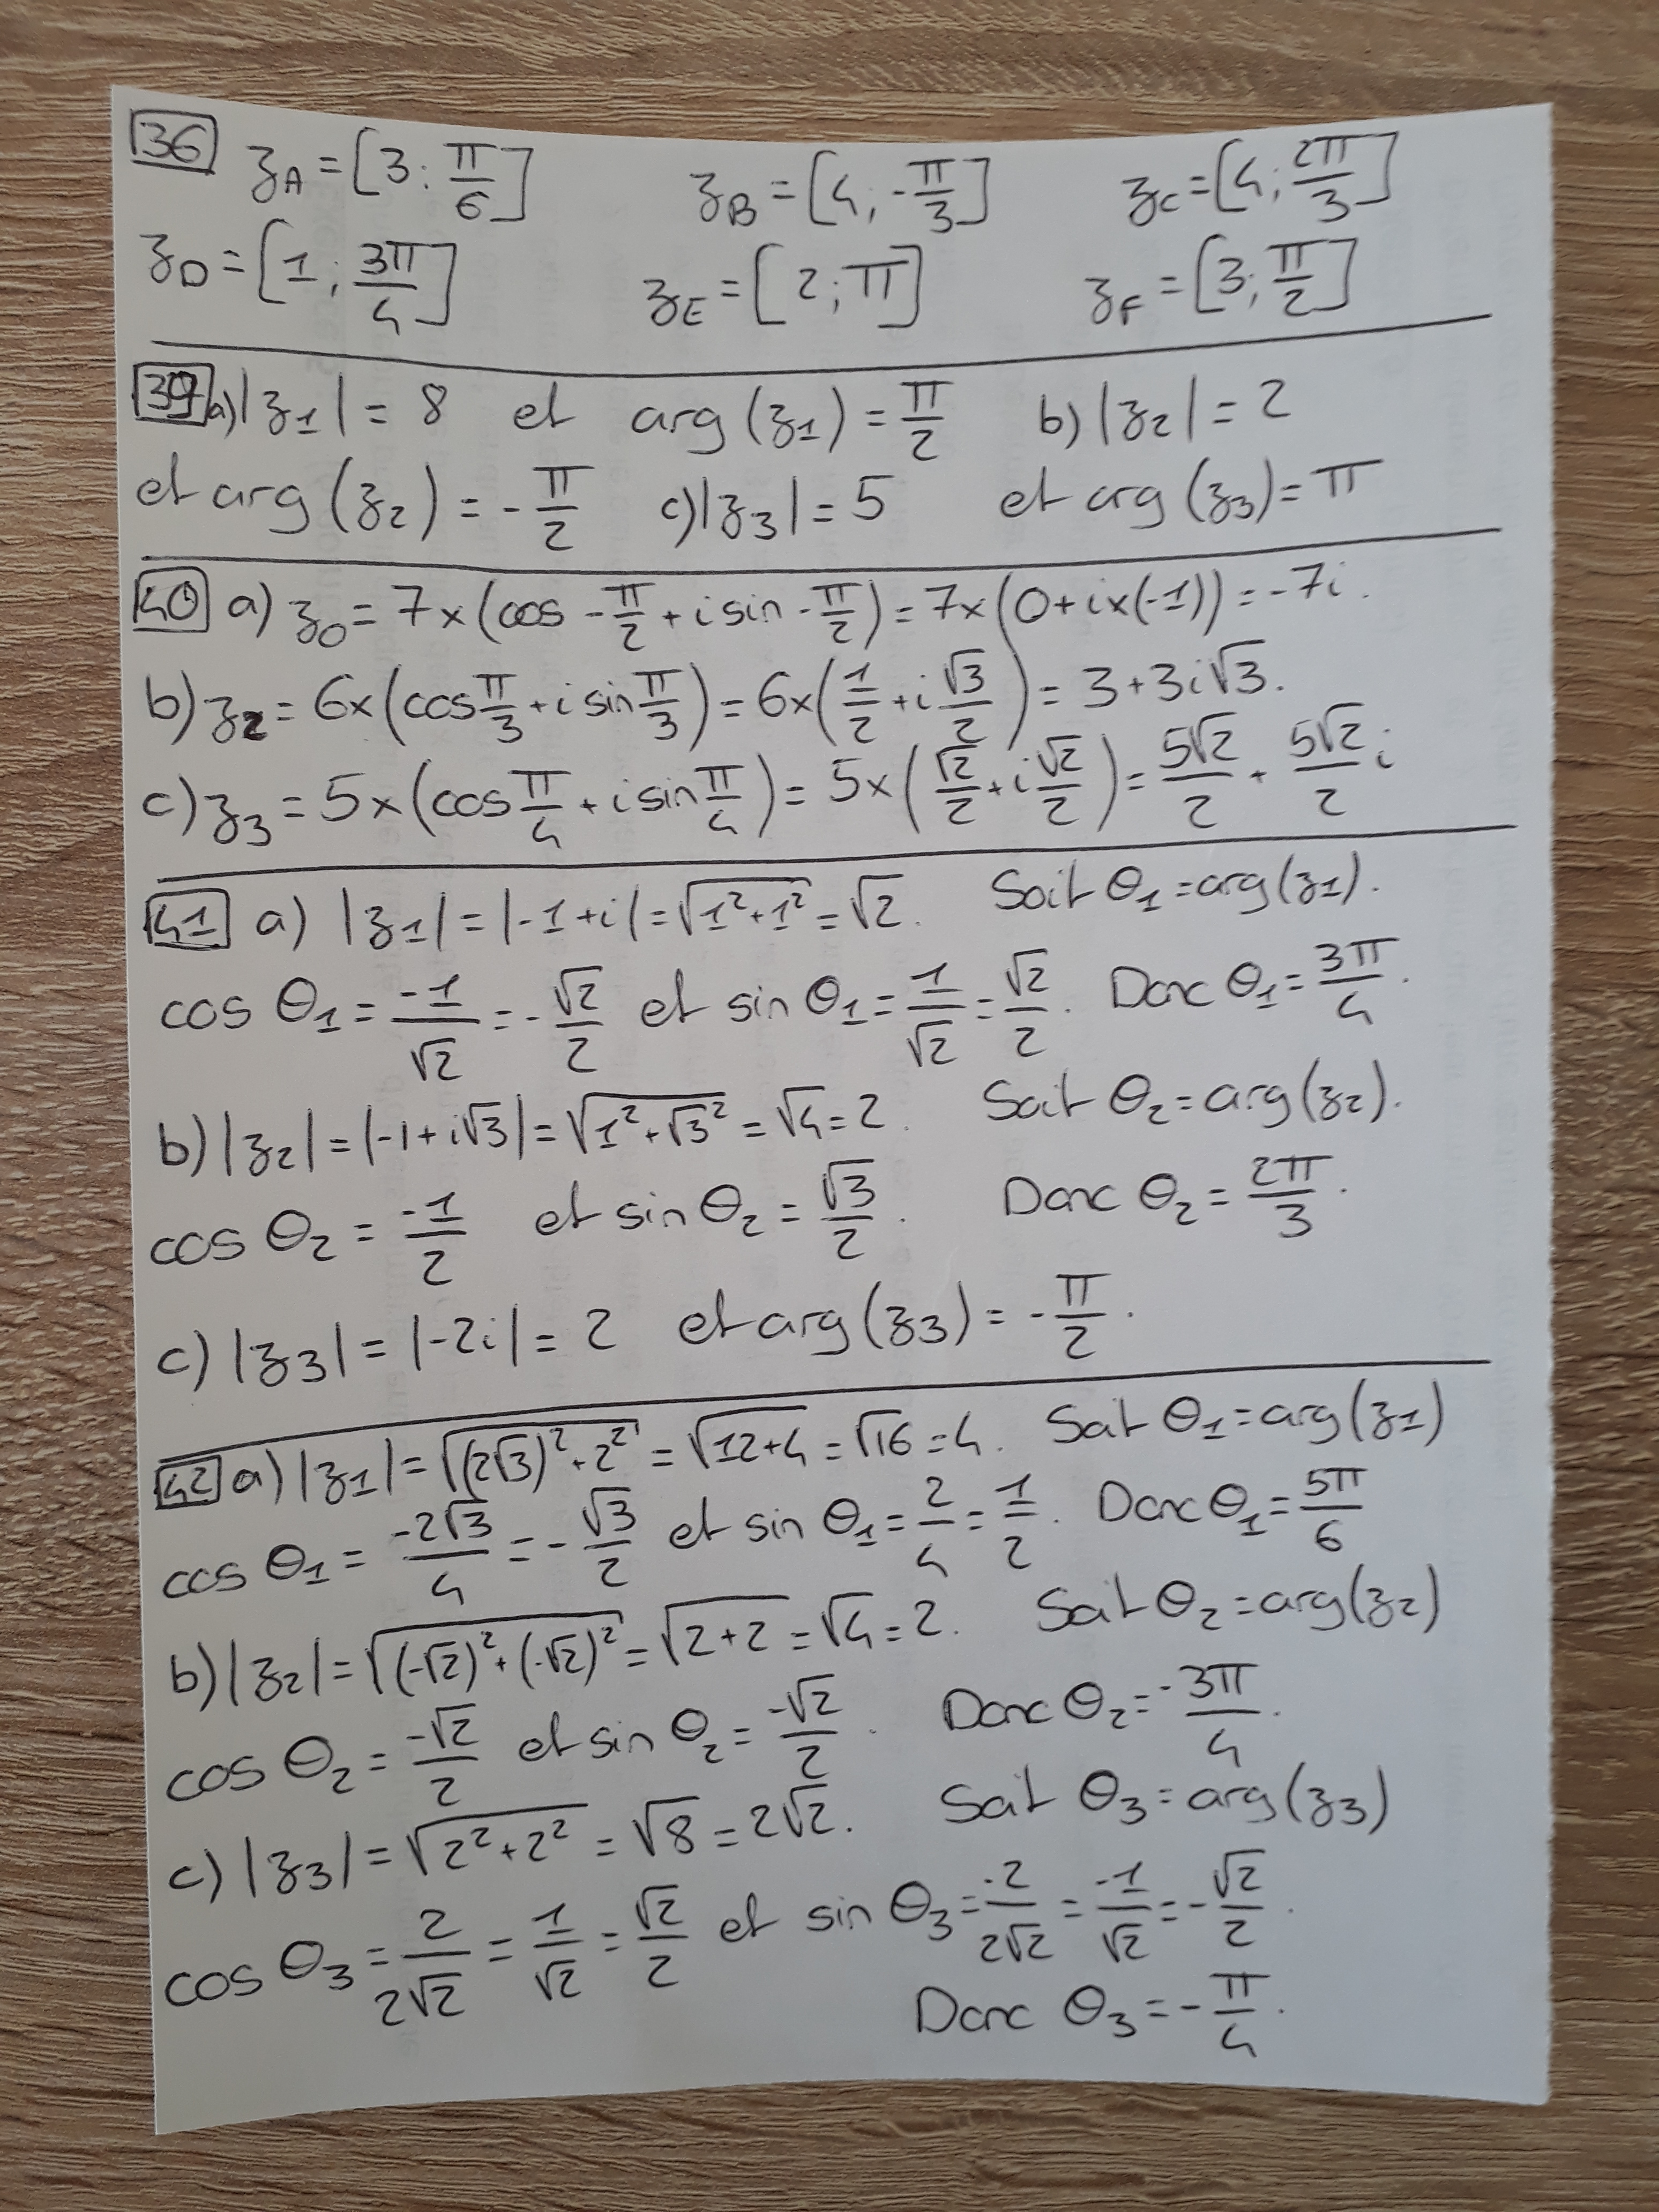 36 z_A = [3; π/6] z_B = [4; -π/3] z_C = [4; 2π/3]
z_D = [1; 3π/4] z_E = [2; π] z_F = [3; π/2]
39 a) |z_1| = 8 et arg(z_1) = π/2 b) |z_2| = 2
et arg(z_2) = -π/2 c) |z_3| = 5 et arg(z_3) = π
40 a) z_0 = 7×(cos -π/2 + i sin -π/2) = 7×(0+i×(-1)) = -7i.
b) z_2 = 6×(cos π/3 + i sin π/3) = 6×(1/2 + i √3/2) = 3+3i√3.
c) z_3 = 5×(cos π/4 + i sin π/4) = 5×(√2/2 + i √2/2) = 5√2/2 + 5√2/2 i
41 a) |z_1| = |-1+i| = √(1²+1²) = √2. Soit θ_1 = arg(z_1).
cos θ_1 = -1/√2 = -√2/2 et sin θ_1 = 1/√2 = √2/2. Donc θ_1 = 3π/4.
b) |z_2| = |-1+i√3| = √(1²+√3²) = √4 = 2. Soit θ_2 = arg(z_2).
cos θ_2 = -1/2 et sin θ_2 = √3/2. Donc θ_2 = 2π/3.
c) |z_3| = |-2i| = 2 et arg(z_3) = -π/2.
42 a) |z_1| = √((2√3)²+2²) = √(12+4) = √16 = 4. Soit θ_1 = arg(z_1)
cos θ_1 = -2√3/4 = -√3/2 et sin θ_1 = 2/4 = 1/2. Donc θ_1 = 5π/6
b) |z_2| = √((-√2)²+(-√2)²) = √(2+2) = √4 = 2. Soit θ_2 = arg(z_2)
cos θ_2 = -√2/2 et sin θ_2 = -√2/2. Donc θ_2 = -3π/4.
c) |z_3| = √(2²+2²) = √8 = 2√2. Soit θ_3 = arg(z_3)
cos θ_3 = 2/(2√2) = 1/√2 = √2/2 et sin θ_3 = -2/(2√2) = -1/√2 = -√2/2.
Donc θ_3 = -π/4.